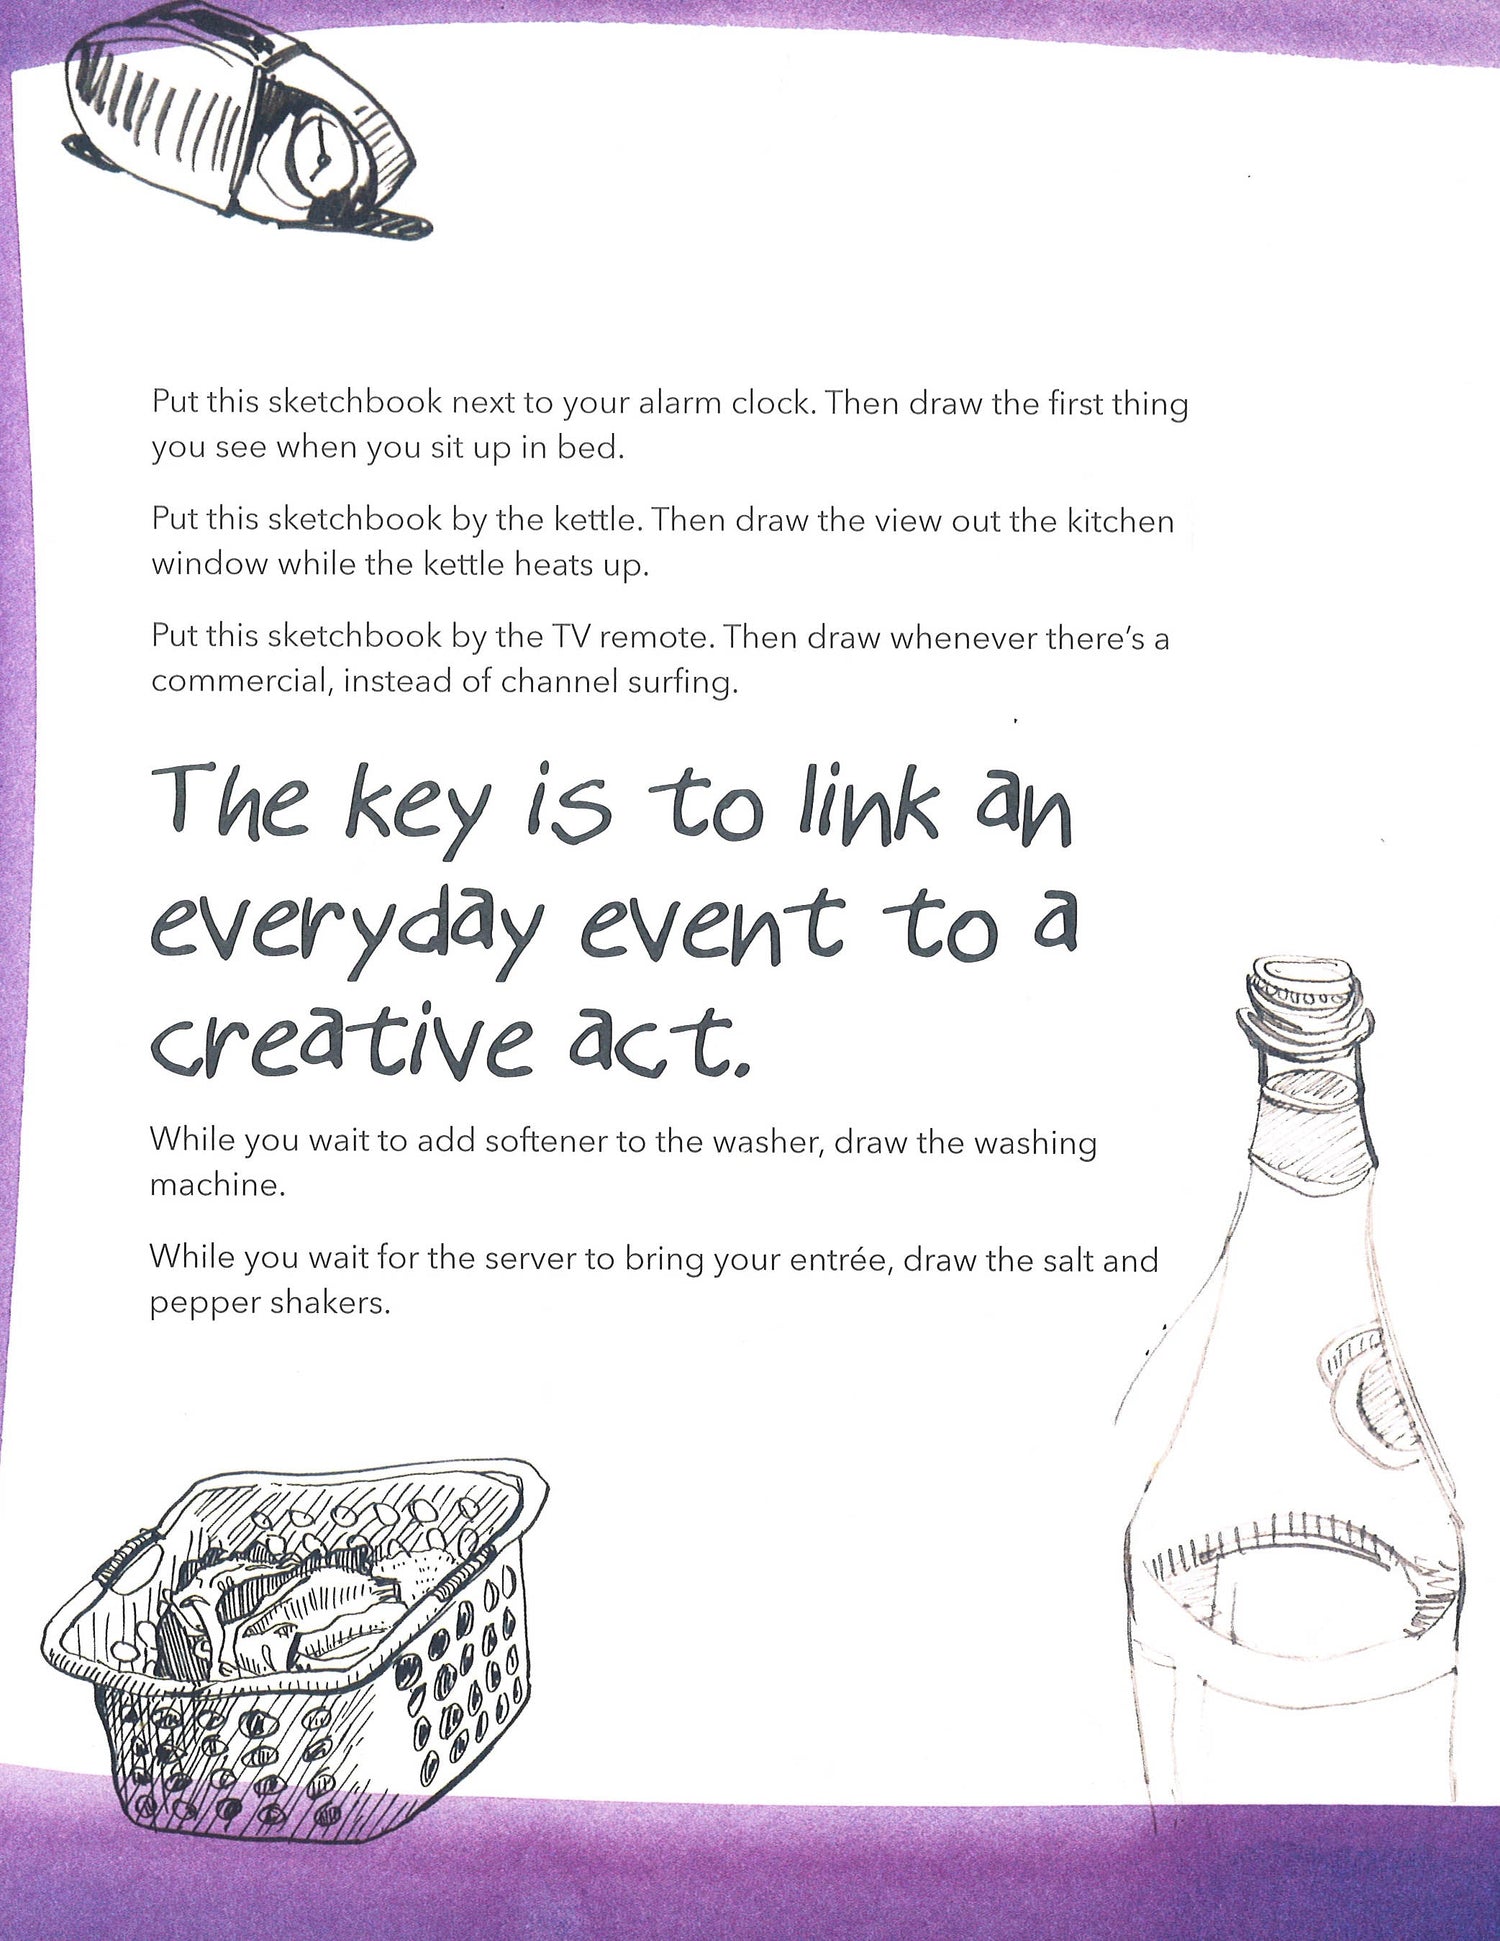 Put this sketchbook next to your alarm clock. Then draw the first thing
you see when you sit up in bed.
Put this sketchbook by the kettle. Then draw the view out the kitchen
window while the kettle heats up.
Put this sketchbook by the TV remote. Then draw whenever there’s a
commercial, instead of channel surfing.
The key is to link an
everyday event to a
creative act.
While you wait to add softener to the washer, draw the washing
machine.
While you wait for the server to bring your entrée, draw the salt and
pepper shakers.